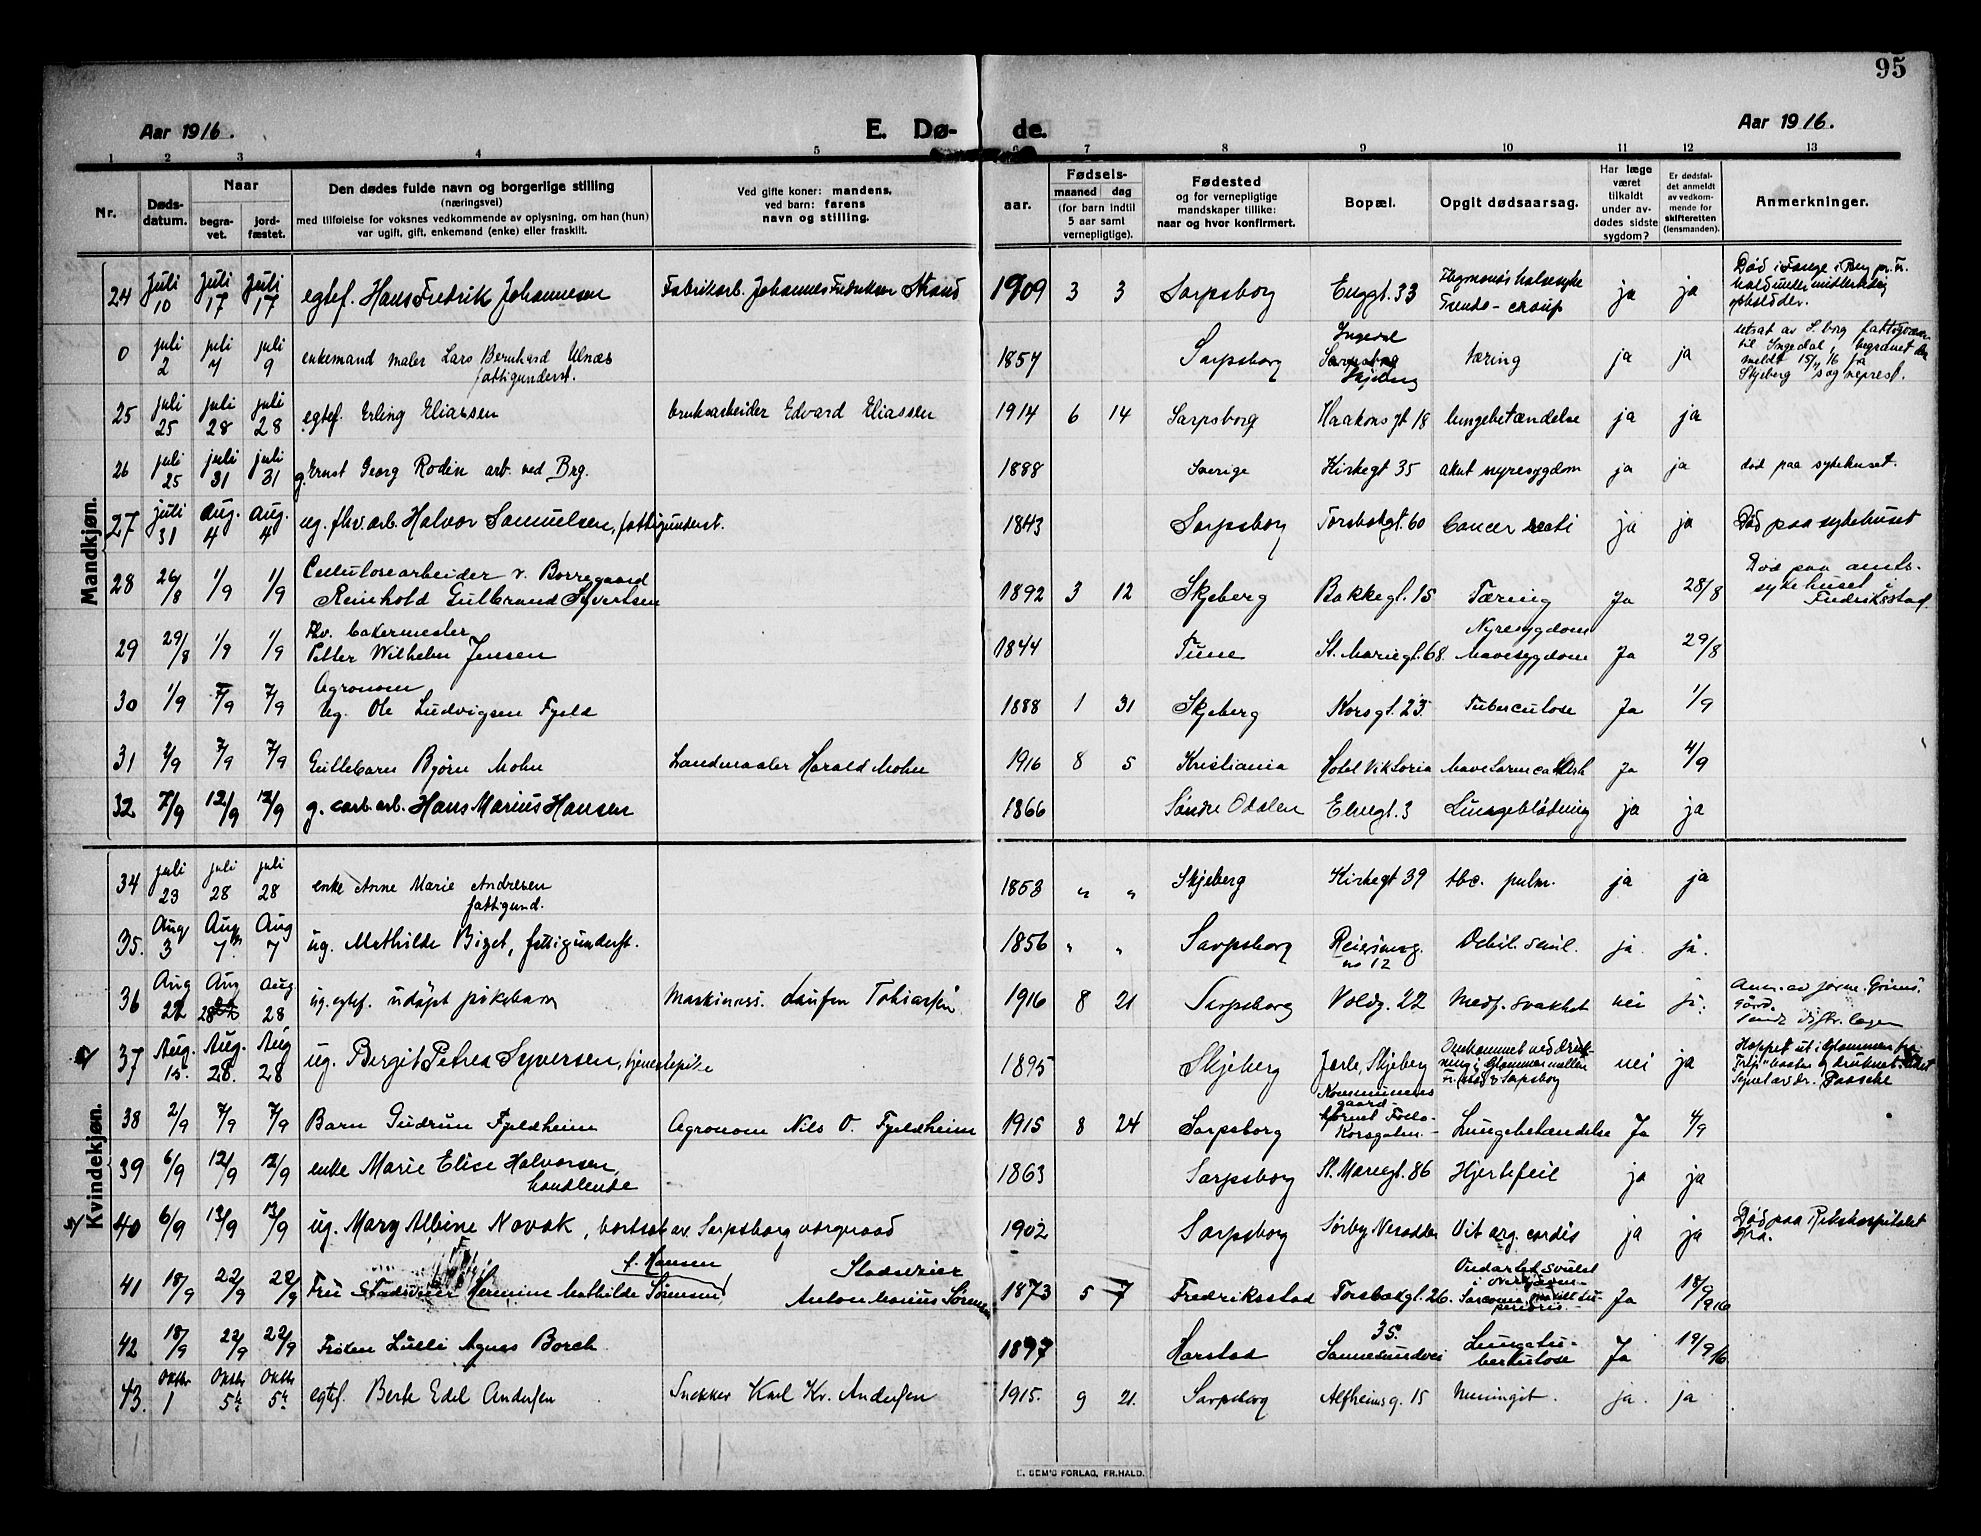 95
Aar 1916.
E. Dø- de.
Aar 1916.
1 2 3 4 5 6 7 8 9 10 11 12 13
Nr.
Døds-
datum.
Naar
begra-
vet.
jord-
fæstet.
Den dødes fulde navn og borgerlige stilling
(næringsvei)
med tilføielse for voksnes vedkommende av oplysning, om han (hun)
var ugift, gift, enkemand (enke) eller fraskilt.
Ved gifte koner: mandens,
ved barn: farens
navn og stilling.
aar.
Fødsels-
maaned dag
(for barn indtil
5 aar samt
vernepligtige).
Fødested
og for vernepligtige
mandskaper tillike:
naar og hvor konfirmert.
Bopæl.
Opgit dødsaarsag.
Har læge
været
tilkaldt
under av-
dødes sidste
sygdom?
Er dødsfal-
det anmeldt
av vedkom-
mende for
skifteretten
(lensmanden).
Anmerkninger.
Mandkjøn.
24 Juli 10 Juli 17 Juli 17 egtef. Hans Fredrik Johannesen Fabrikarb. Johannes Fredriksen Strand 1909 3 3 Sarpsborg Enggt. 33 ja ja
0 juli 2 juli 7 juli 9 enkemand maler Lars Bernhard Ulnæs
fattigunderst. 1857 Sarpsborg Ingedal tæring ja ja
til Ingedal, begravet der
meldt 15/11 16 fra
Skjeberg sogneprest.
25 juli 25 juli 28 juli 28 egtef. Erling Eliassen bruksarbeider Edvard Eliassen 1914 6 14 Sarpsborg Haakons gt 18 lungebetændelse ja ja
26 juli 25 juli 31 juli 31 g. Ernst Georg Rodin arb. ved Brg. 1888 Sverige Kirkegt 35 akut nyresygdom ja ja død paa sykehuset.
27 juli 31 aug. 4 aug. 4 ug. fhv. arb. Halvor Samuelsen, fattigunderst. 1843 Sarpsborg Torsbækgt. 60 Cancer recti ja ja Død paa sykehuset
28 26/8 1/9 1/9 Cellulosearbeider v. Borregaard
Reinhold Gulbrand Syvertsen 1892 3 12 Skjeberg Bakkegt. 15 Tæring Ja 28/8 Død paa amts-
sykehuset i
Fredriksstad.
29 29/8 1/9 1/9 Fhv. bakermester
Petter Wilhelm Jensen 1844 Tune St. Mariegt. 68. Nyresygdom
Mavesygdom Ja 29/8
30 1/9 7/9 7/9 Agronom
Ug. Ole Ludvigsen Fjeld 1888 1 31 Skjeberg Korsgt. 23. Tuberculose Ja 1/9
31 2/9 7/9 7/9 Guttebarn Bjørn Mohn Landmaaler Harald Mohn 1916 8 5 Kristiania Hotel Viktoria Mavetarmcatarrh Ja 4/9
32 7/9 12/9 12/9 g. carb. arb. Hans Marius Hansen 1866 Søndre Odalen Elvegt. 3 Lungeblødning ja ja
Kvindekjøn.
34 juli 23 juli 28 juli 28 enke Anne Marie Andresen
fattigund. 1853 " " Skjeberg Kirkegt 39 tbc. pulm. ja ja
35. Aug 3 Aug 7. Aug 7 ug. Mathilde Bizet, fattigunderst. 1856 " " Sarpsborg
no 12 Debil. senil. ja. ja.
36 Aug 22 Aug 28 aug. 28 ug. egtef. udøpt pikebarn Maskinass. Laufen Tobiassen 1916 8 21 Sarpsborg Voldg. 22 Medf. svakhet nei ja.
Anm. av jorm. Grims-
gård
37 Aug. 15. Aug. 28. Aug 28 ug. Birgit Petrea Syversen, tjenestepike 1895 Skjeberg Jarle, Skjeberg Omkommet ved druk-
ning i Glommen mellem
Fr.stad & Sarpsborg nei ja Hoppet ut i Glommen fra
38 2/9 7/9 7/9 Barn Gudrun Fjeldheim Agronom Nils O. Fjeldheim 1915 8 24 Sarpsborg Kommunens
gaard
hjørnet
Korsgaten. Lungebetændelse Ja 4/9
39 6/9 12/9 12/9 enke Marie Elise Halvorsen,
handlende 1863 Sarpsborg St. Mariegt. 86 Hjertefeil ja ja
40 6/9 13/9 13/9 ug. Mary Albine Novak, bortsat av Sarpsborg værgeraad 1902 Sarpsborg Sørby, Nesodden Vit. org. cordis ja ja Død paa Rikshospitalet
Kra.
41 18/9 22/9 22/9 Fru Hermine Mathilde Sørensen f. Hansen Stadsveier
Anton Marius Sørensen 1873 5 7 Fredriksstad Torsbækgt. 26. Ondartet svulst
i overkjæven
Sarcoma maxill. su-
perioris. Ja 18/9 916
42 18/9 22/9 22/9 Frøken Lulli Agnes Borch 1897 Harstad 35.
Sannesundvei Lungetu-
berkulose Ja 19/9 16
43. Oktbr 1 Oktbr 5te Oktbr 5te egtef. Berte Edel Andersen Snekker Karl Kr. Andersen 1915. 9 21. Sarpsborg Alfheimsg. 15 Meningit. ja. ja
E. SEM'S FORLAG, FR.HALD.